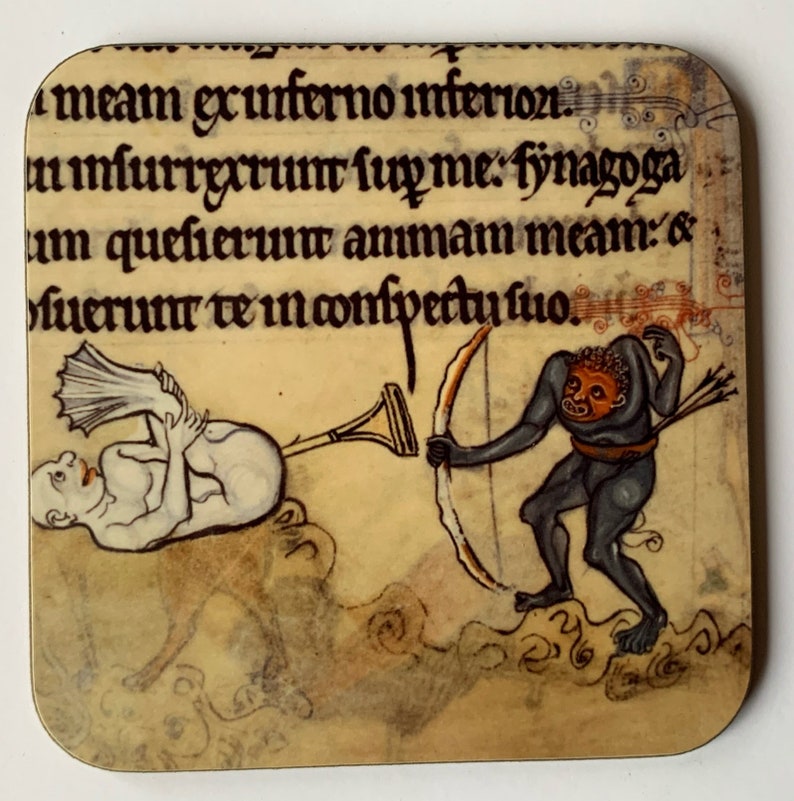 meam ex inferno inferiori.
insurrexerunt sup me: synagoga
um quesierunt animam meam: &
osuerunt te in conspectu suo.